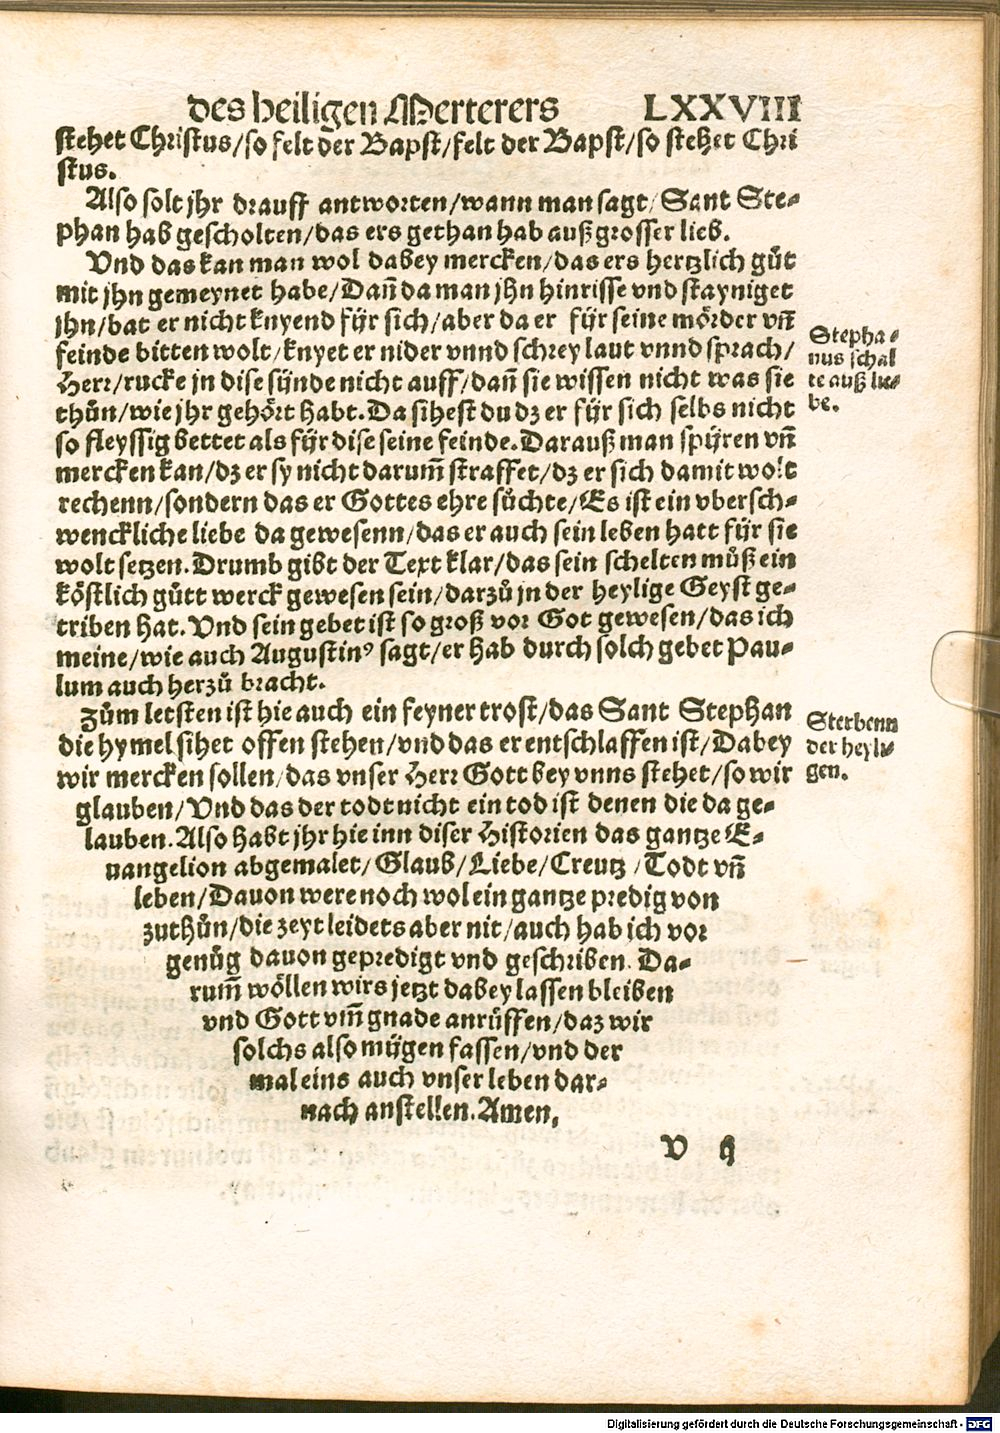 des heiligen Merterers LXXVIII
stehet Christus/so felt der Bapst/felt der Bapst/so stehet Chri
stus.
Also solt jhr drauff antworten/wann man sagt/Sant Ste-
phan hab gescholten/das ers gethan hab auß grosser lieb.
Vnd das kan man wol dabey mercken/das ers hertzlich gůt
mit jhn gemeynet habe/Dañ da man jhn hinrisse vnd stayniget
jhn/bat er nicht knyend für sich/aber da er für seine mörder vñ
feinde bitten wolt/knyet er nider vnnd schrey laut vnnd sprach/
Herr/rucke jn dise sünde nicht auff/dañ sie wissen nicht was sie
thůn/wie jhr gehört habt. Da sihest du dz er für sich selbs nicht
so fleyssig bettet als für dise seine feinde. Darauß man spüren vñ
mercken kan/dz er sy nicht darum̃ straffet/dz er sich damit wolt
rechenn/sondern das er Gottes ehre sůchte/Es ist ein vbersch-
wenckliche liebe da gewesenn/das er auch sein leben hatt für sie
wolt setzen. Drumb gibt der Text klar/das sein schelten můß ein
köstlich gůtt werck gewesen sein/darzů jn der heylige Geyst ge-
triben hat. Vnd sein gebet ist so groß vor Got gewesen/das ich
meine/wie auch Augustinꝰ sagt/er hab durch solch gebet Pau-
lum auch herzů bracht.
Zům letsten ist hie auch ein feyner trost/das Sant Stephan
die hymel sihet offen stehen/vnd das er entschlaffen ist/Dabey
wir mercken sollen/das vnser Herr Gott bey vnns stehet/so wir
glauben/Vnd das der todt nicht ein tod ist denen die da ge-
lauben. Also habt jhr hie inn diser Historien das gantze E-
uangelion abgemalet/Glaub/Liebe/Creutz/Todt vñ
leben/Dauon were noch wol ein gantze predig von
zuthůn/die zeyt leidets aber nit/auch hab ich vor
genůg dauon gepredigt vnd geschriben. Da-
rum̃ wöllen wirs jetzt dabey lassen bleiben
vnd Gott vm̃ gnade anrůffen/daz wir
solchs also mügen fassen/vnd der
mal eins auch vnser leben dar-
nach anstellen. Amen,
Stepha-
nus schal
te auß lie-
be.
Sterbenn
der heyli-
gen.
Digitalisierung gefördert durch die Deutsche Forschungsgemeinschaft - DFG